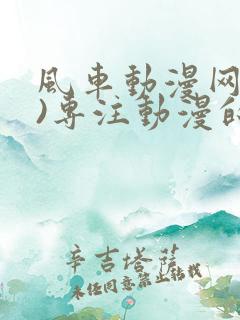 風车動漫网
)专注動漫的
辛吉塔薩
未经同意禁止转载